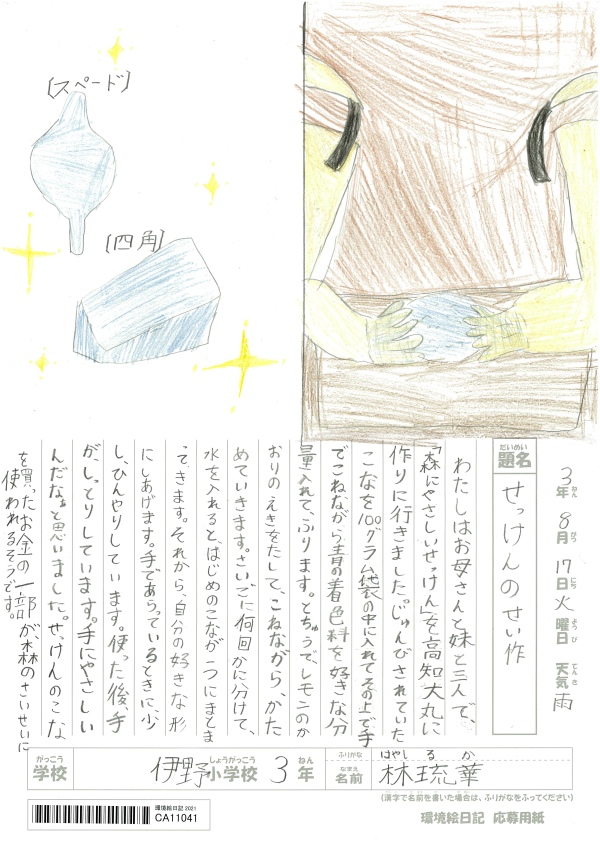 〔スペード〕
〔四角〕
3年 8月 17日 火曜日 天気 雨
ねん がつ にち ようび てんき
だいめい
題名
せっけんのせい作
わたしはお母さんと妹と三人で、
「森にやさしいせっけん」を高知大丸に
作りに行きました。じゅんびされていた
こなを100グラム袋の中に入れてその上で手
でこねながら青の着色料を好きな分
量入れて、ふります。とちゅうで、レモニのか
おりのえきをたして、こねながら、かた
めていきます。さいごに何回かに分けて、
水を入れると、はじめのこなが一つにまとま
ってきます。それから、自分の好きな形
にしあげます。手であらっているときに、少
し、ひんやりしています。使った後、手
が、しっとりしています。手にやさしい
んだなぁと思いました。せっけんのこな
を買ったお金の一部が、森のさいせいに
使われるそうです。
がっこう
学校
しょうがっこう ねん
伊野小学校 3年
ふりがな
はやし る か
なまえ
名前
林琉華
(漢字で名前を書いた場合は、ふりがなをふってください)
環境絵日記 2021
CA11041
環境絵日記 応募用紙